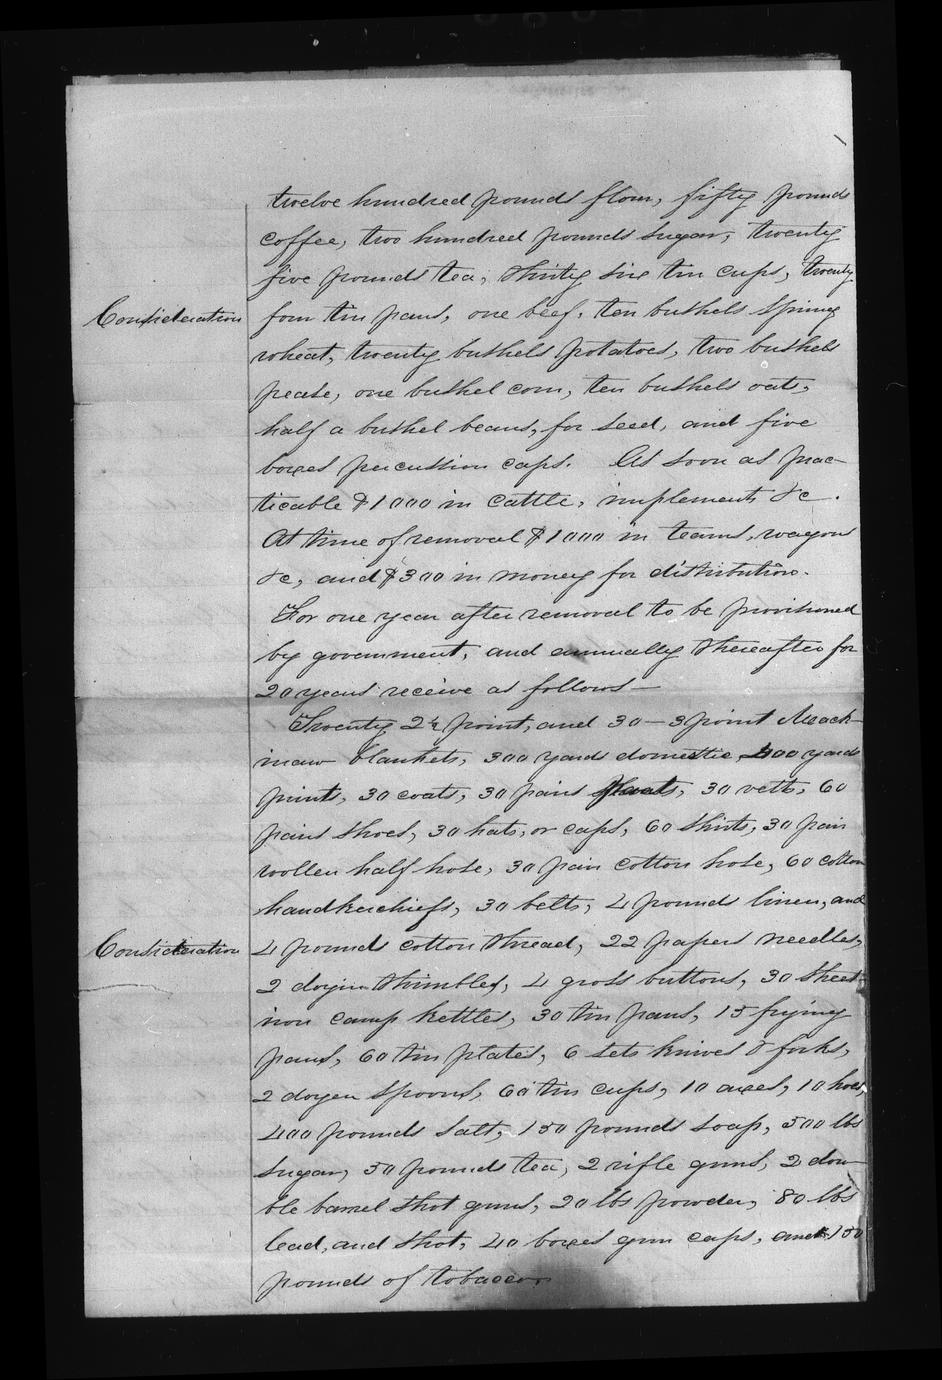 twelve hundred pounds flour, fifty pounds
coffee, two hundred pounds sugar, twenty
five pounds tea, thirty six tin cups, twenty
Consideration
four tin pans, one beef, ten bushels spring
wheat, twenty bushels potatoes, two bushels
pease, one bushel corn, ten bushels oats,
half a bushel beans, for seed, and five
boxes percussion caps. As soon as prac-
ticable $1000 in cattle, implements &c.
At time of removal $1000 in teams, wagons
&c, and $300 in money for distribution.
For one year after removal to be provisioned
by government, and annually thereafter for
20 years receive as follows—
Twenty 2½ point, and 30—3 point Mack-
inaw blankets, 300 yards domestic, 400 yards
prints, 30 coats, 30 pairs pants, 30 vests, 60
pairs shoes, 30 hats, or caps, 60 shirts, 30 pair
wollen half hose, 30 pair cotton hose, 60 cotton
handkerchiefs, 30 belts, 4 pounds linen, and
Consideration
4 pounds cotton thread, 22 papers needles,
2 dozen thimbles, 4 gross buttons, 30 sheet-
iron camp kettles, 30 tin pans, 15 frying
pans, 60 tin plates, 6 sets knives & forks,
2 dozen spoons, 60 tin cups, 10 axes, 10 hoes,
400 pounds salt, 150 pounds soap, 500 lbs
sugar, 50 pounds tea, 2 rifle guns, 2 dou-
ble barrel shot guns, 20 lbs powder, 80 lbs
lead, and shot, 40 boxes gun caps, and 150
pounds of tobacco.